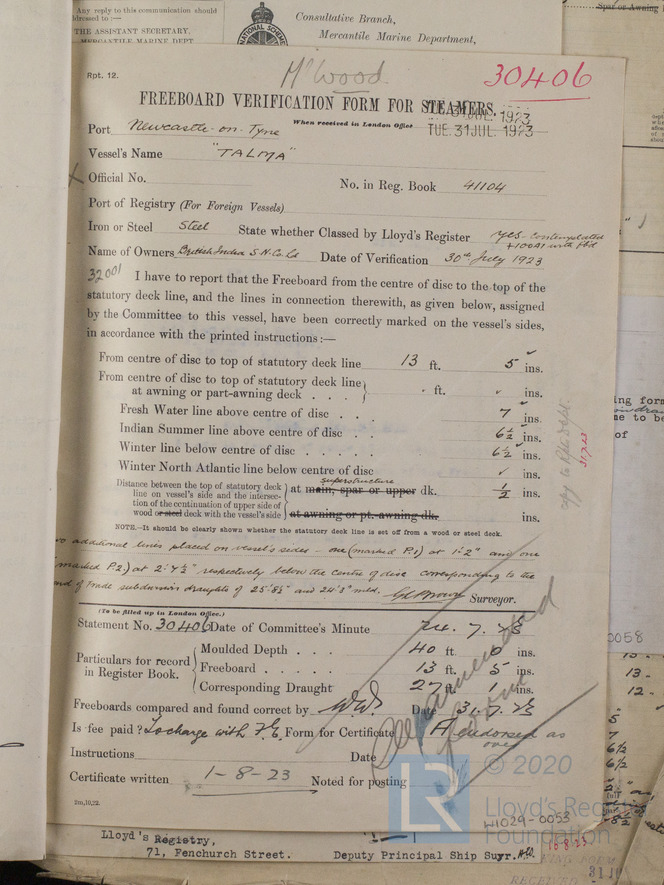 Any reply to this communication should
ddressed to :—
THE ASSISTANT SECRETARY,
MERCANTILE MARINE DEPT
Consultative Branch,
Mercantile Marine Department,
Spar or Awning
Rpt. 12.
Mr Wood
30406
FREEBOARD VERIFICATION FORM FOR STEAMERS.
When received in London Office TUE. 31 JUL. 1923
Port Newcastle-on-Tyne
Vessel's Name "TALMA"
Official No.
No. in Reg. Book 41104
Port of Registry (For Foreign Vessels)
Iron or Steel Steel State whether Classed by Lloyd's Register yes-contemplated
+100A1 with fbd
Name of Owners British India S.N.Co. Ld Date of Verification 30th July 1923
32001
I have to report that the Freeboard from the centre of disc to the top of the
statutory deck line, and the lines in connection therewith, as given below, assigned
by the Committee to this vessel, have been correctly marked on the vessel's sides,
in accordance with the printed instructions :—
From centre of disc to top of statutory deck line 13 ft. 5 ins.
From centre of disc to top of statutory deck line
at awning or part-awning deck . . . ft. ins.
Fresh Water line above centre of disc . . 7 ins.
Indian Summer line above centre of disc . . 6½ ins.
Winter line below centre of disc . . . . . 6½ ins.
Winter North Atlantic line below centre of disc ins.
Distance between the top of statutory deck
line on vessel's side and the intersec-
tion of the continuation of upper side of
wood or steel deck with the vessel's side
superstructure
at main, spar or upper dk. ½ ins.
at awning or pt. awning dk. ins.
NOTE.—It should be clearly shown whether the statutory deck line is set off from a wood or steel deck.
wo additional lines placed on vessel's sides - one (marked P.1) at 1'-2" and one
(marked P.2.) at 2'-7½" respectively below the centre of disc corresponding to the
rd of Trade subdivision draughts of 25'-8½" and 24'-3" mld.
Surveyor.
31.7.23
(To be filled up in London Office.)
Statement No. 30406 Date of Committee's Minute 24.7.23
Particulars for record
in Register Book.
Moulded Depth . . . . 40 ft. 0 ins.
Freeboard . . . . . 13 ft. 5 ins.
Corresponding Draught 27 ft. 1 ins.
Freeboards compared and found correct by WW. Date 31.7.23
Is fee paid? To charge with F.E. Form for Certificate A endorsed as
over
Instructions Date
Certificate written 1-8-23 Noted for posting
2m,10,22.
© 2020
LR
Lloyd's Register
Foundation
W1029-0053
Lloyd's Registry,
71, Fenchurch Street.
Deputy Principal Ship Suyr.